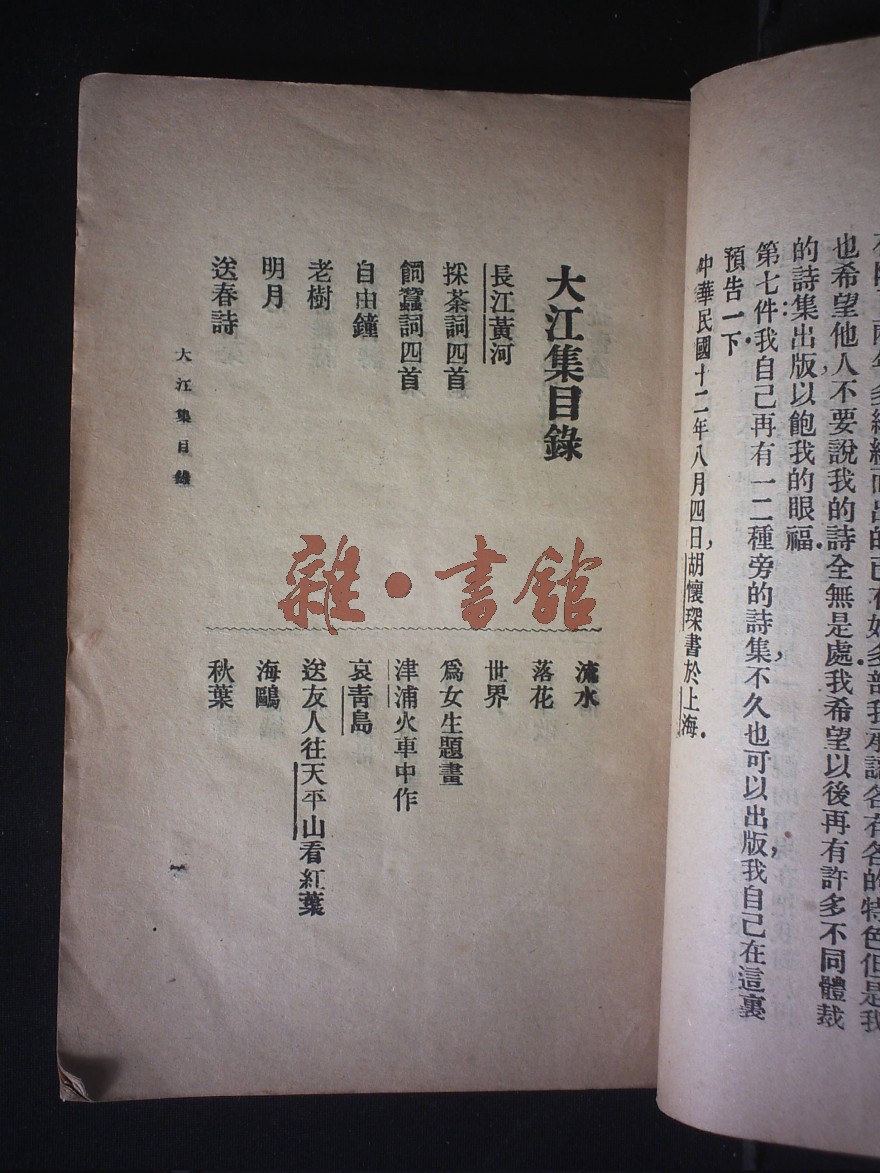 也希望他人不要說我的詩全無是處我希望以後再有許多不同體裁
的詩集出版以飽我的眼福．
第七件我自己再有一二種旁的詩集不久也可以出版，我自己在這裏
預告一下．
中華民國十二年八月四日，胡懷琛書於上海．
大江集目錄
長江黃河
採茶詞四首
飼蠶詞四首
自由鐘
老樹
明月
送春詩
流水
落花
世界
爲女生題畫
津浦火車中作
哀青島
送友人往天平山看紅葉
海鷗
秋葉
大江集目錄
一
雜·書館